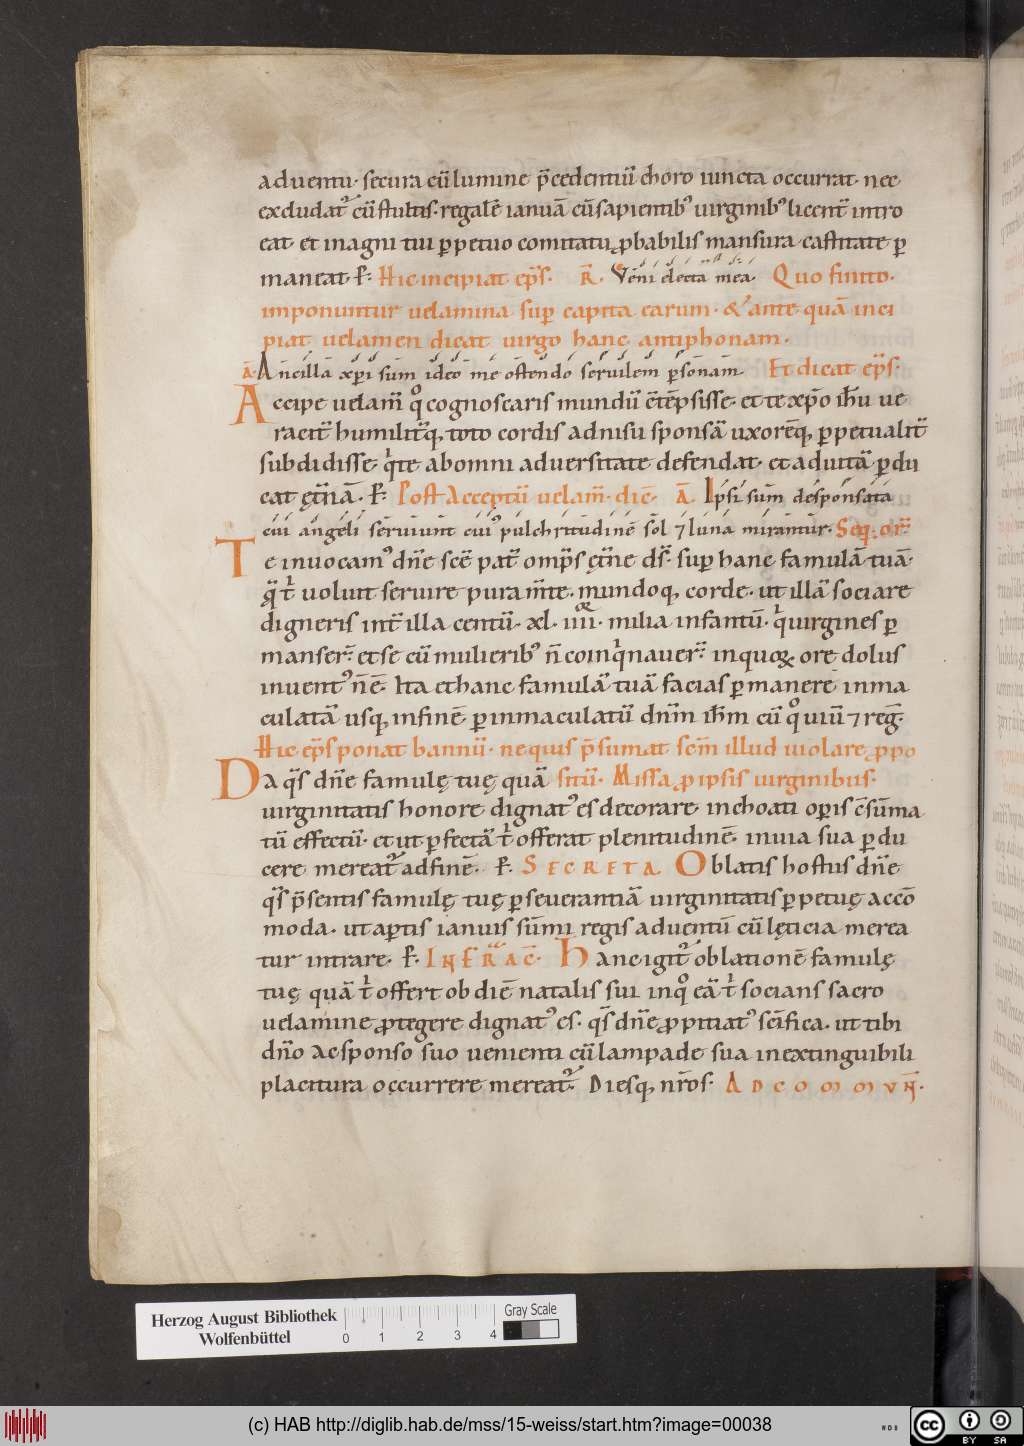 aduentu· secura cū lumine p̄cedentiū choro iuncta occurrat· nec
excludat᷑ cū stultis· regalē ianuā cū sapientibꝰ uirginibꝰ licent᷑ intro
eat· et in agni tui ꝑpetuo comitatu ꝓbabilis mansura castitate ꝑ
maneat· ꝑ· Hic incipiat ep̄s· R̄· Veni electa mea· Quo finito·
imponuntur uelamina suꝑ capita earum· & ante quā inci
piat uelamen dicat uirgo hanc antiphonam·
ā· Ancilla xp̄i sum ideo me ostendo seruilem ꝑsonam· Et dicat ep̄s·
Accipe uelam̄ qͦ cognoscaris mundū ct̄ēpsisse· et te xp̄o ih̄u ue
racit᷑ humilit᷑q, toto cordis adnisu sponsā uxorēq, ꝑpetualit᷑
subdidisse· qⁱ te ab omni aduersitate defendat· et ad uitā ꝑdu
cat ęt̄nā· ꝑ· Post Acceptū uelam̄· dic̄· Ā· Ipsi sum desponsata
cui angeli seruiunt cuiꝰ pulchritudinē sol ⁊ luna mirantur· Seq̄· or̄·
Te inuocamꝰ dn̄e sc̄e pat᷑ omp̄s ęt̄ne ds̄· suꝑ hanc famulā tuā·
q̄ tⁱ uoluit seruire pura m̄te· mundoq, corde· ut illā sociare
digneris int᷑ illa centū· xl· iiii· milia infantū· qⁱ uirgines ꝑ
manser̄· et se cū mulieribꝰ n̄ coinqⁱnauer̄· in quoꝝ ore dolus
inuentꝰ n̄ ē· Ita et hanc famulā tuā facias ꝑmanere inma
culatā usq, in finē· ꝑ inmaculatū dn̄m ih̄m cū qͦ uiū ⁊ reg̅·
Hic ep̄s ponat bannū· ne quis p̄sumat sc̄m illud uiolare ꝓpo
Da q̄s dn̄e famulę tuę quā situ᷑· Missa ꝓ ipsis uirginibus·
uirginitatis honore dignatꝰ es decorare· inchoati oꝑis c̄sūma
tū effectū· et ut ꝑfectā tⁱ offerat plenitudinē· inuia sua ꝑdu
cere mereat᷑ ad finē· ꝑ· SECRETA Oblatis hostiis dn̄e
q̄s p̄sentis famulę tuę ꝑseuerantiā uirginitatis ꝑpetuę accō
moda· ut aꝑtis ianuis sūmi regis aduentū cū lęticia merea
tur intrare· ꝑ· INFRA AC̄· Hanc igit᷑ oblationē famulę
tuę quā tⁱ offert ob diē natalis sui inqͦ eā tⁱ socians sacro
uelamine ꝓtegere dignatꝰ es· q̄s dn̄e ꝓpitiatꝰ sc̄ifica· ut tibi
dn̄o ac sponso suo uenienti cū lampade sua inextinguibili
placitura occurrere mereat᷑· Diesq, nr̄os· AD COMMVN̄·
Herzog August Bibliothek
Wolfenbüttel
0 1 2 3 4
Gray Scale
(c) HAB http://diglib.hab.de/mss/15-weiss/start.htm?image=00038
cc BY SA